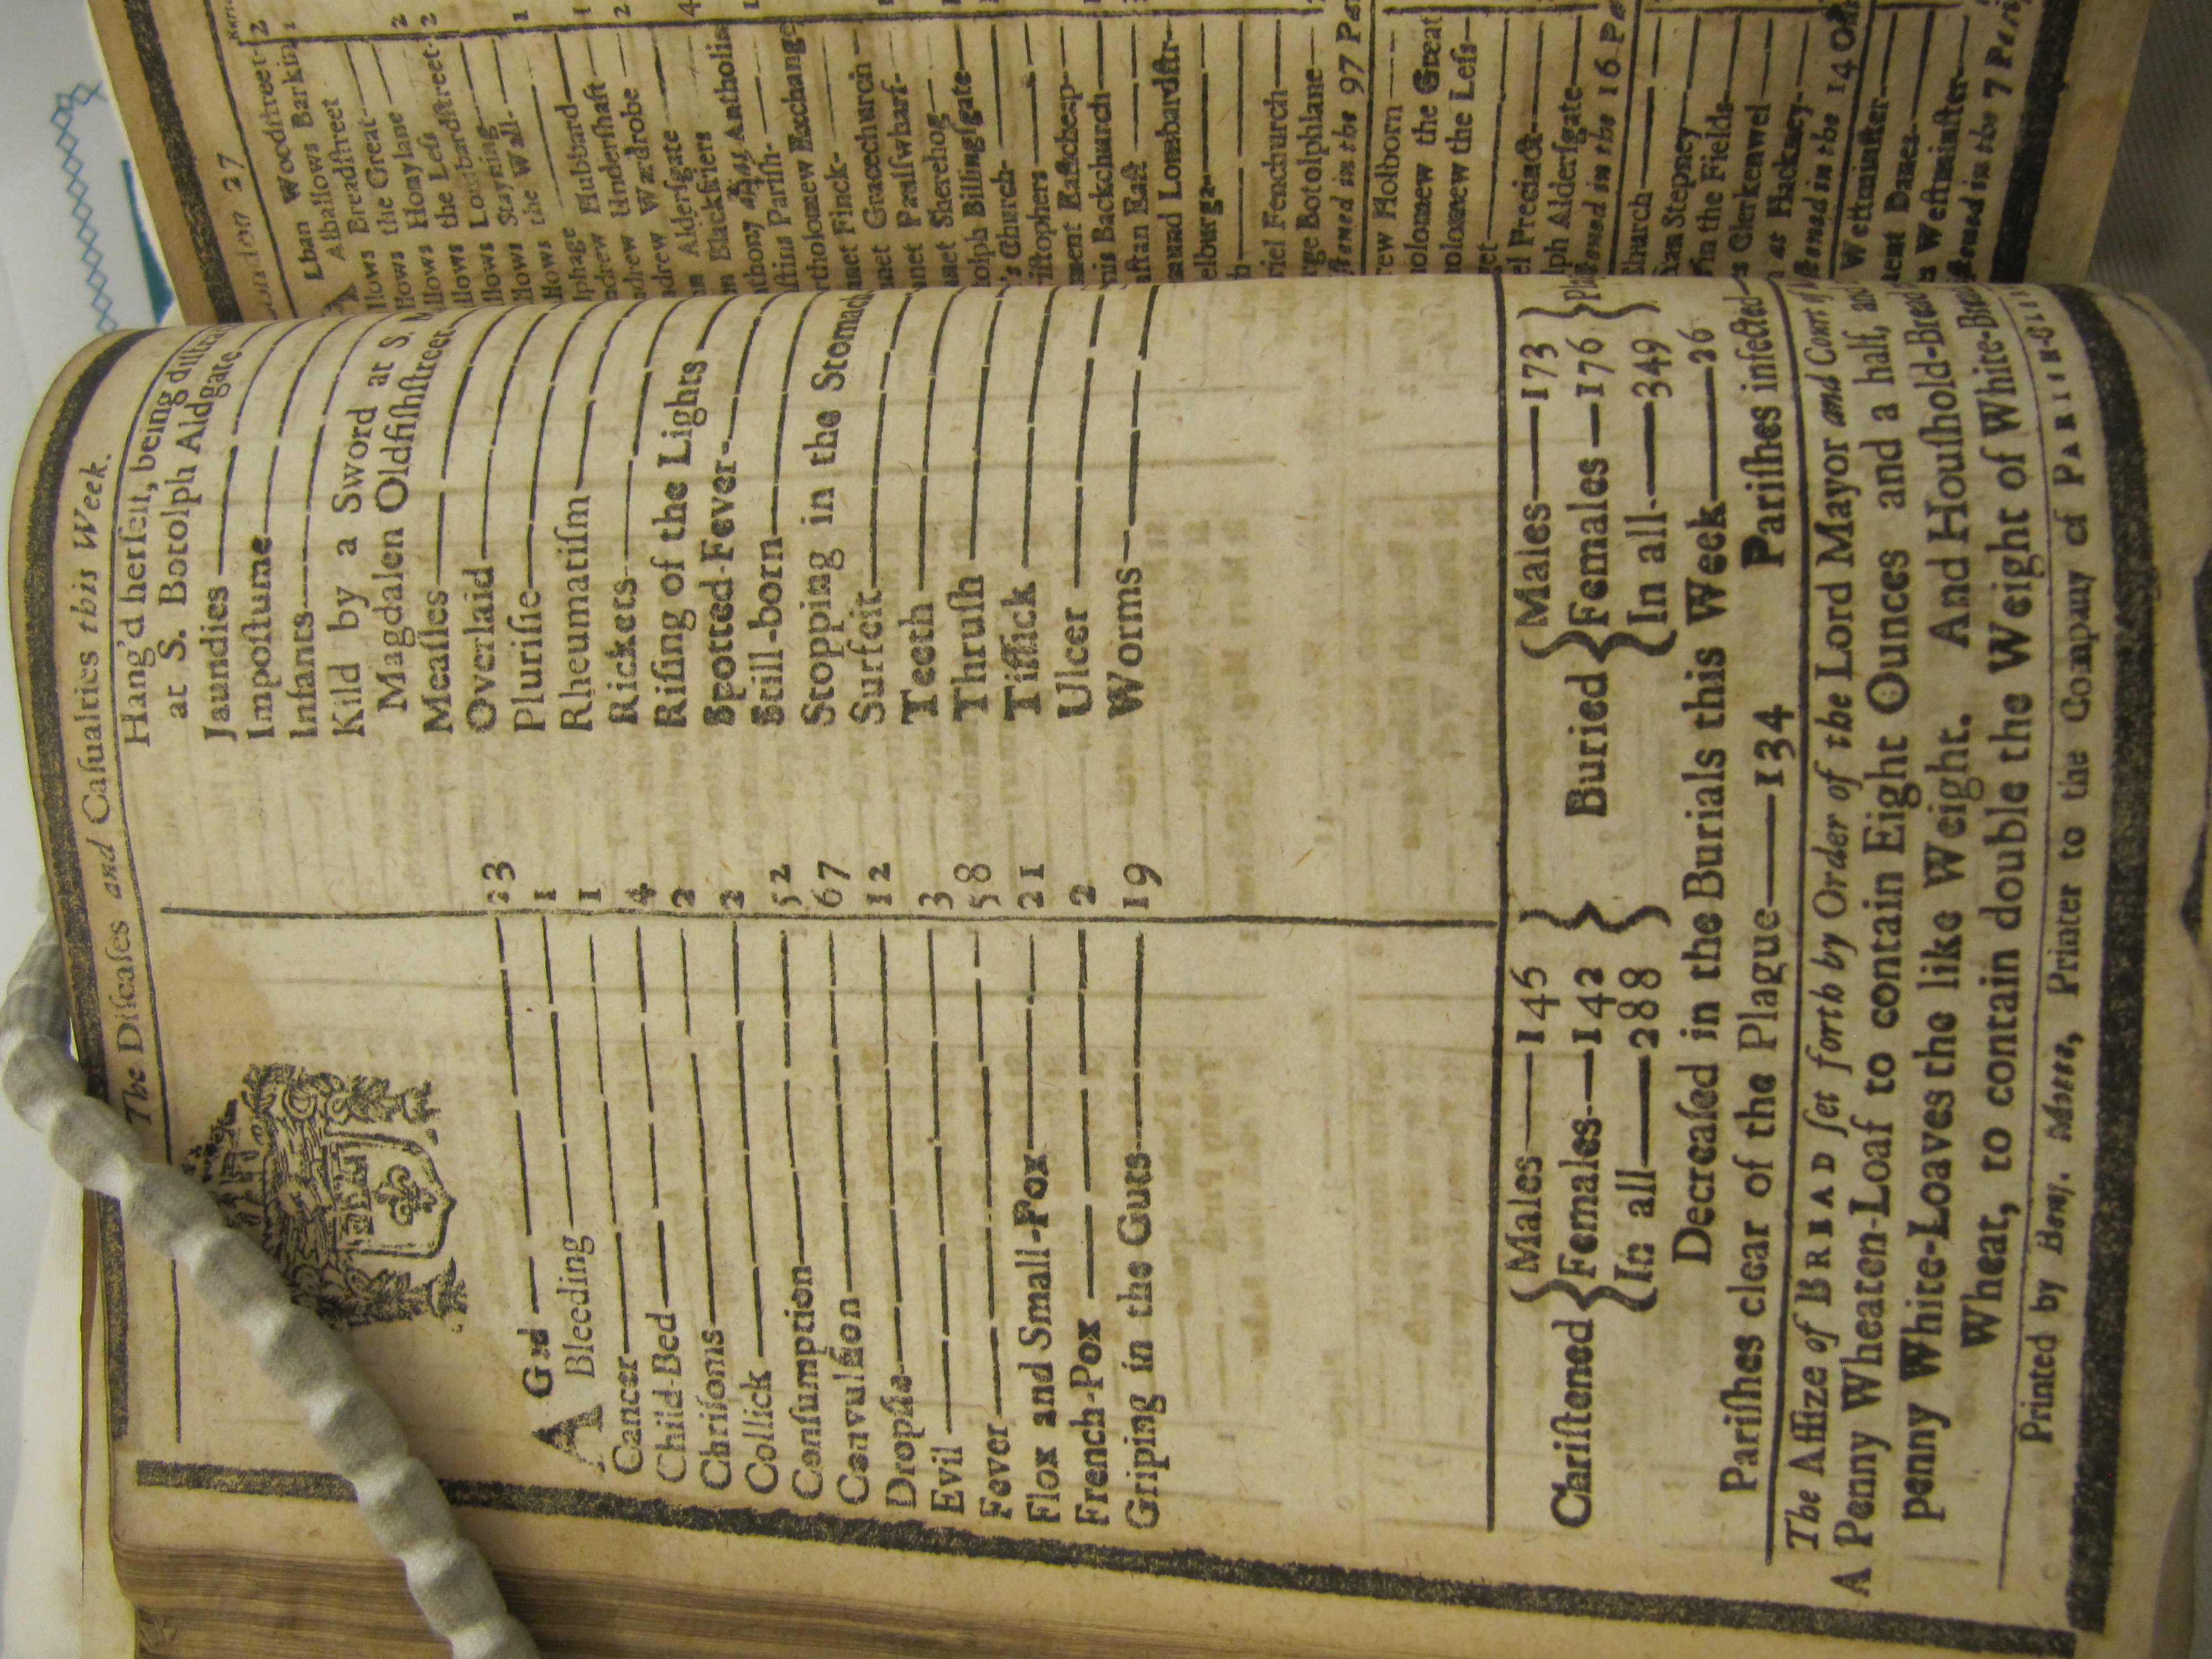 The Diſeaſes and Caſualties this Week.
AGed — 23
Bleeding — 1
Cancer — 1
Child-Bed — 4
Chriſoms — 2
Collick — 2
Conſumption — 52
Convulſion — 67
Dropſie — 12
Evil — 3
Fever — 58
Flox and Small-Pox — 21
French-Pox — 2
Griping in the Guts — 19
Hang'd herſelf, being
at S. Botolph Aldgate
Jaundies
Impoſtume
Infants
Kild by a Sword at S.
Magdalen Oldfiſhſtreet
Meaſles
Overlaid
Pluriſie
Rheumatiſm
Rickets
Riſing of the Lights
Spotted-Fever
Still-born
Stopping in the Stomach
Surfeit
Teeth
Thruſh
Tiſſick
Ulcer
Worms
Chriſtened { Males — 146
Females — 142
In all — 288 }
Buried { Males — 173
Females — 176
In all — 349 }
Decreaſed in the Burials this Week — 26
Pariſhes clear of the Plague — 134 Pariſhes infected
The Aſſize of BREAD ſet forth by Order of the Lord Mayor and Court of
A Penny Wheaten-Loaf to contain Eight Ounces and a half, and
penny White-Loaves the like Weight. And Houſhold-Bread
Wheat, to contain double the Weight of White-Bread
Printed by Benj. Motte, Printer to the Company of PARISH-
London 27
lban Woodſtreet 2
Alhallows Barkin 1
llows Breadſtreet
llows the Great
llows Honylane 2
llows the Leſs 2
llows Lombardſtreet
llows Stayning
llows the Wall 1
lphage
ndrew Hubbard 1
ndrew Underſhaft 2
ndrew Wardrobe 4
Alderſgate
Blackfriers
Antholin
Pariſh
rtholomew Exchange
net Finck
net Gracechurch
net Paulſwharf
net Sherehog
tolph Billingſgate
's Church
riſtophers
ment Eaſtcheap
nis Backchurch
nſtan Eaſt
mund Lombardſtr
elborga
riel Fenchurch
rge Botolphlane
ſtened in the 97 Pa
rew Holborn
olomew the Great
olomew the Leſs
get
el Precinct
lph Alderſgate
ſtened in the 16 P
hurch
tan Stepney
in the Fields
s Clerkenwel
n at Hackney
ſtened in the 14 O
Weſtminſter
ment Danes
Weſtminſter
ſtened in the 7 Pari